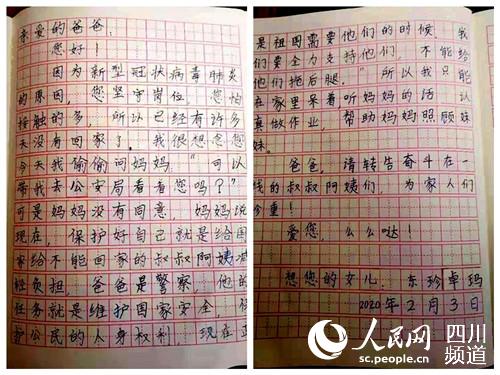 亲爱的爸爸：
您好！
因为新型冠状病毒肺炎
的原因，您坚守岗位，您怕
接触的多，所以已经有许多
天没有回家了。我很想念您，
今天我偷偷问妈妈“可以
带我去公安局看看您吗？”
可是妈妈没有同意，妈妈说
现在，保护好自己就是给国
家给不能回家的叔叔阿姨减
轻负担，爸爸是警察，他的
任务就是维护国家安全，保
护公民的人身权利，现在正
是祖国需要他们的时候，我
们要全力支持他们，不能给
他们拖后腿。”所以我只能
在家里呆着听妈妈的话，认
真做作业，帮助妈妈照顾妹
妹。
爸爸，请转告奋斗在一
线的叔叔阿姨们，为家人们
珍重！
爱您，么么哒！
想您的女儿：东珍卓玛
2020年2月3日
人民网 四川频道
sc.people.cn